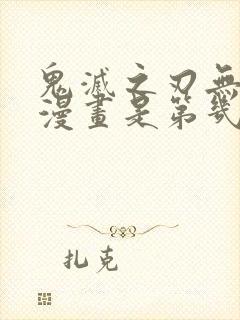 鬼滅之刃無
漫畫是第幾
扎克